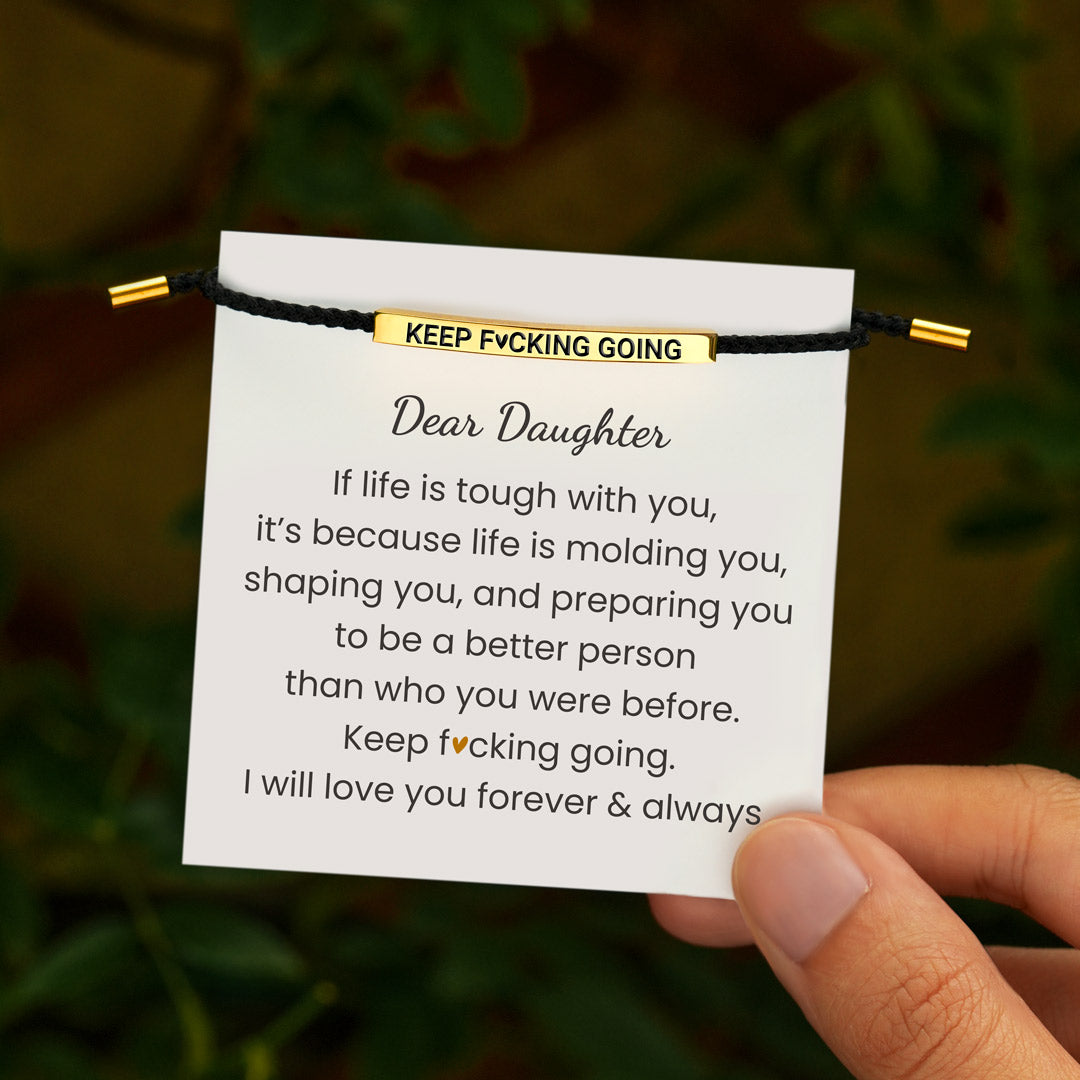 KEEP F♥CKING GOING
Dear Daughter
If life is tough with you,
it's because life is molding you,
shaping you, and preparing you
to be a better person
than who you were before.
Keep f♥cking going.
I will love you forever & always